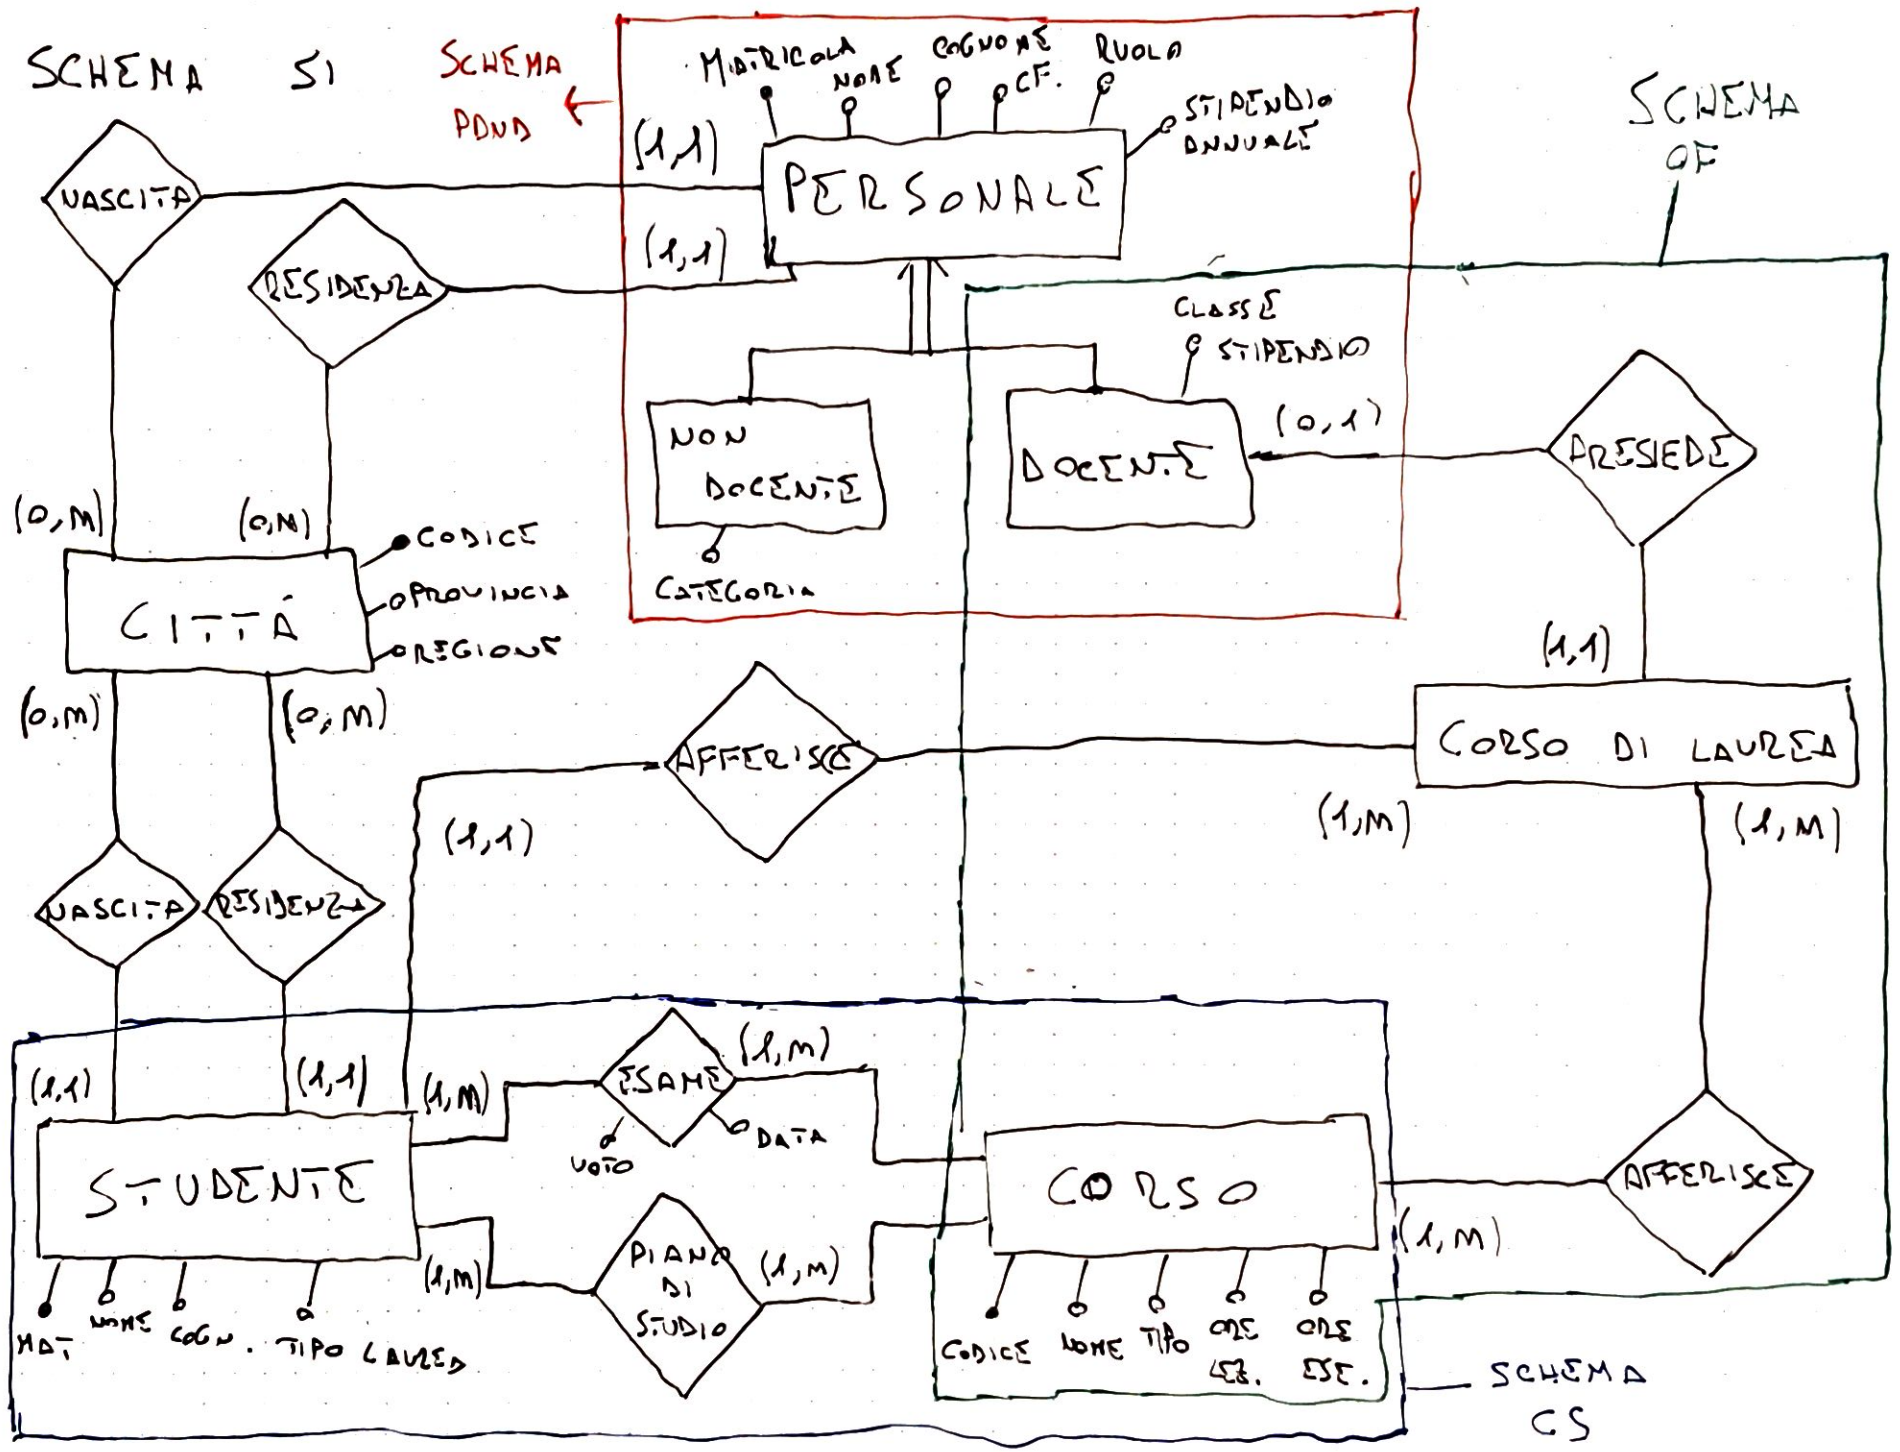 SCHEMA SI
SCHEMA
PDND
MATRICOLA
NOME
COGNOME
CF.
RUOLO
STIPENDIO
ANNUALE
SCHEMA
OF
NASCITA
(1,1)
PERSONALE
RESIDENZA
(1,1)
CLASSE
STIPENDIO
NON
DOCENTE
DOCENTE
(0,1)
PRESIEDE
(0,M)
(0,M)
CODICE
PROVINCIA
REGIONE
CATEGORIA
CITTÀ
(1,1)
(0,M)
(0,M)
AFFERISCE
CORSO DI LAUREA
(1,1)
(1,M)
(1,M)
NASCITA
RESIDENZA
(1,1)
(1,1)
(1,M)
ESAME
(1,M)
VOTO
DATA
STUDENTE
CORSO
AFFERISCE
(1,M)
PIANO
DI
STUDIO
(1,M)
(1,M)
MAT
NOME
COGN.
TIPO LAUREA
CODICE
NOME
TIPO
ORE
LEZ.
ORE
ESE.
SCHEMA
CS